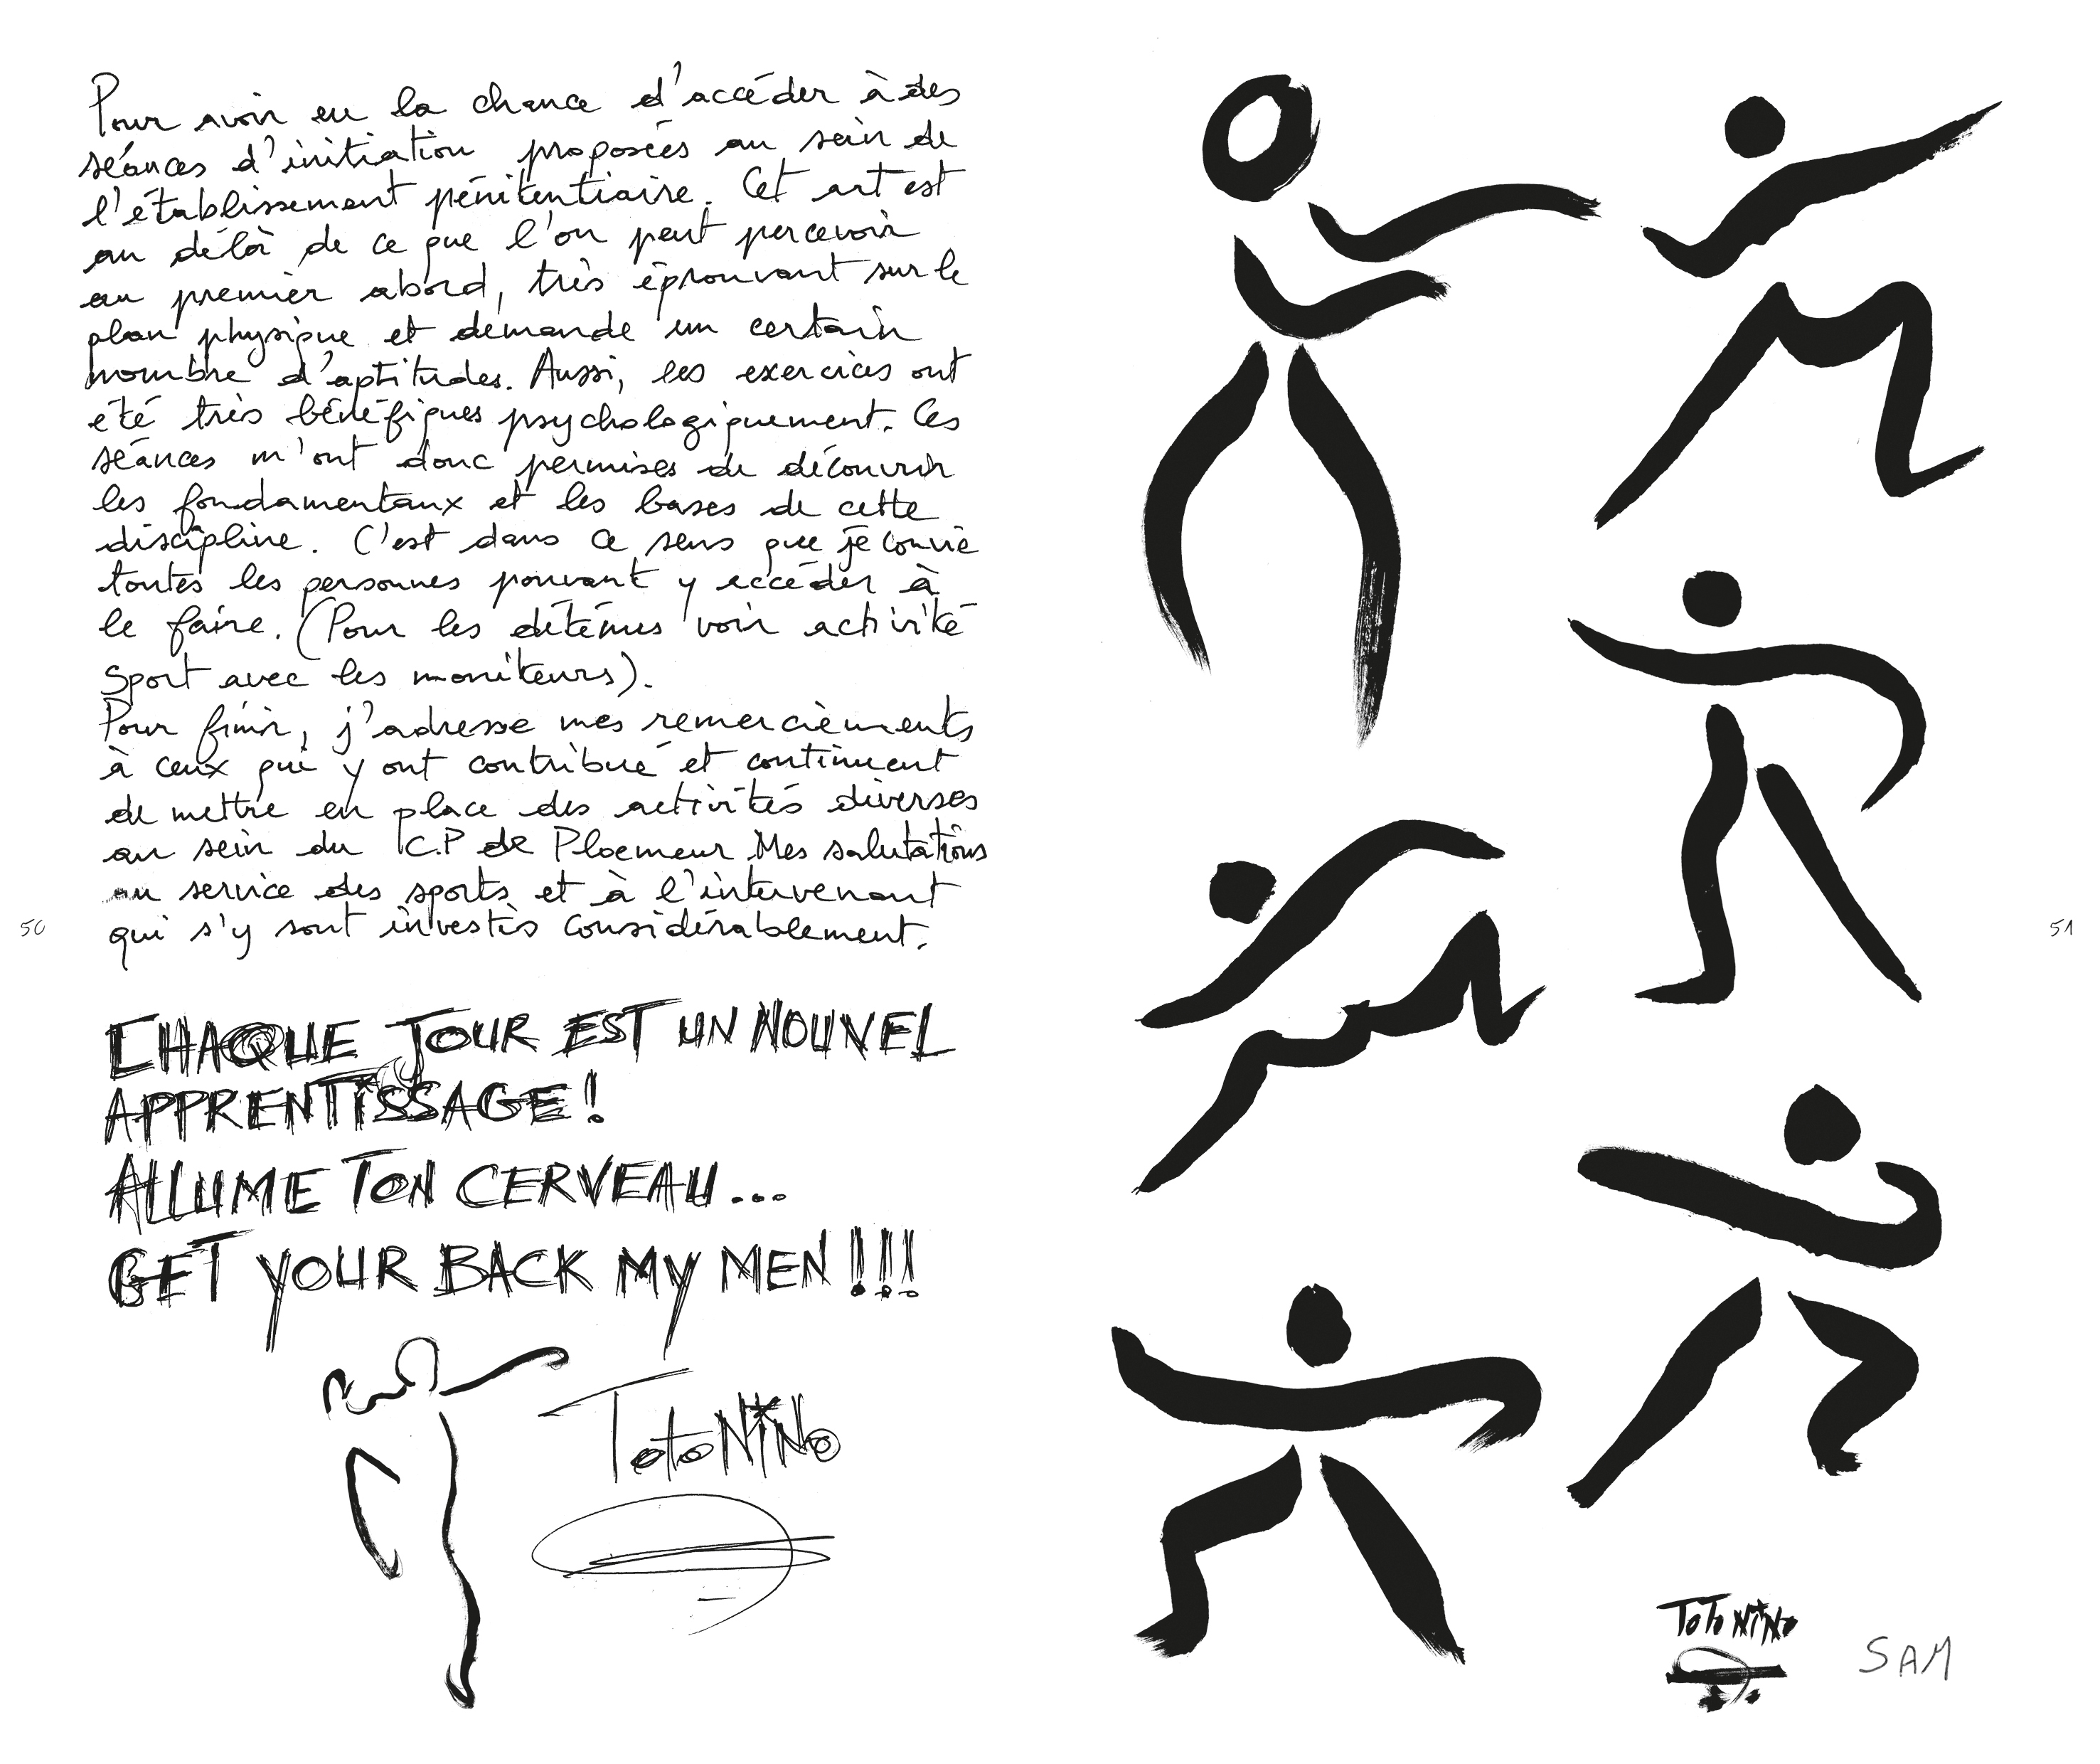 Pour avoir eu la chance d'accéder à des
séances d'initiation proposées au sein de
l'établissement pénitentiaire. Cet art est
au délà de ce que l'on peut percevoir
au premier abord, très éprouvant sur le
plan physique et demande un certain
nombre d'aptitudes. Aussi, les exercices ont
été très bénéfiques psychologiquement. Ces
séances m'ont donc permises de découvrir
les fondamentaux et les bases de cette
discipline. C'est dans ce sens que je convie
toutes les personnes pouvant y accéder à
le faire. (Pour les détenus voir activité
Sport avec les moniteurs).
Pour finir, j'adresse mes remerciements
à ceux qui y ont contribué et continuent
de mettre en place des activités diverses
au sein du C.P de Ploemeur Mes salutations
au service des sports et à l'intervenant
qui s'y sont investis considérablement.
50
CHAQUE JOUR EST UN NOUVEL
APPRENTISSAGE!
ALLUME TON CERVEAU...
GET YOUR BACK MY MEN!!!
TotoNiNo
51
ToToNiNo
SAM